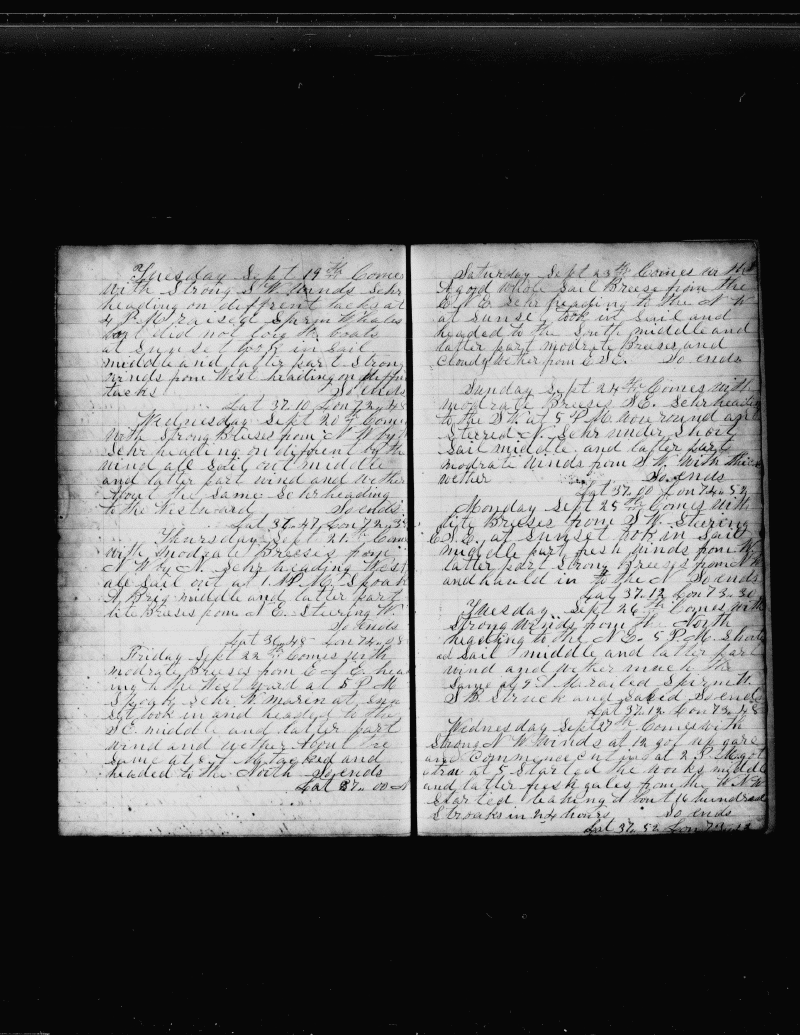 Tuesday Sept 19th Comes
with Strong S W Winds Schr
heading on diffrent tacks at
4 P.M. raised Spirm Whales
but did not Loig th boats
at Sunset took in Sail
middle and latter part Strong
winds from West heading on
tacks So ends
Lat 37.10 Lon 72.48
Wednesday Sept 20th
With Strong Breses from N W by
Schr heading on diffrent by the
wind all Sail out middle
and latter part wind and wether
About the Same Schr heading
to the Westward So ends
Lat 37.47 Lon 72.
Thursday Sept 21th
with modrate Breeses from
N W by N. Schr heading West
all Sail out at 1. P M. Spoak
A Brig middle and latter part
lite Breses from N E. Steering W.
So ends
Lat 36.48 Lon 74.08
Friday Sept 22th Comes with
modrate Breeses from E by E. hea
ing to the West ward at 5 P M
Spoak Schr W marin at Sun
Set took in and headed to the
S E. middle and latter part
wind and wether About the
Same at 8 tacked and
headed to the North So ends
Lat 37.00 N
Saturday Sept 23th Comes in
A good whole Sail Breese from the
E N E Schr heading to the N W
at Sunset took in Sail and
headed to the South middle and
latter part modrate Breeses and
Cloudy wether from E S E. So ends
Sunday Sept 24th Comes with
modrate Breeses S E. Schr heading
to the S W. at 5 P M Wore round and
Steered N. Schr under Short
Sail middle and latter part
modrate Winds from S W. With thick
wether So ends
Lat 37.00 Lon 74.52
Monday Sept 25th Comes with
lite Breeses from S W. Steering
E.S.E. at Sunset took in Sail
middle part fresh winds from
latter part Strong Breeses from
and hauld in to the N So ends
Lat 37.12 Lon 73.30
Tuesday Sept 26th Comes with
Strong Winds from the North
heading to the N E. 5 P.M. Short
Sail middle and latter part
wind and wether much the
Same at 9 raised Spirm
S B Struck and So ends
Lat 37.12 Lon 73.48
Wednesday Sept 27th Comes with
Strong N W Winds at 12 got up gare
and Commence cuting at 2 P. M got
threu at 5 Started the works middle
and latter fresh gales from the W N W
Started leaking About 16 hundred
Stroaks in 24 hours So ends
Lat 37.52 Lon 73.